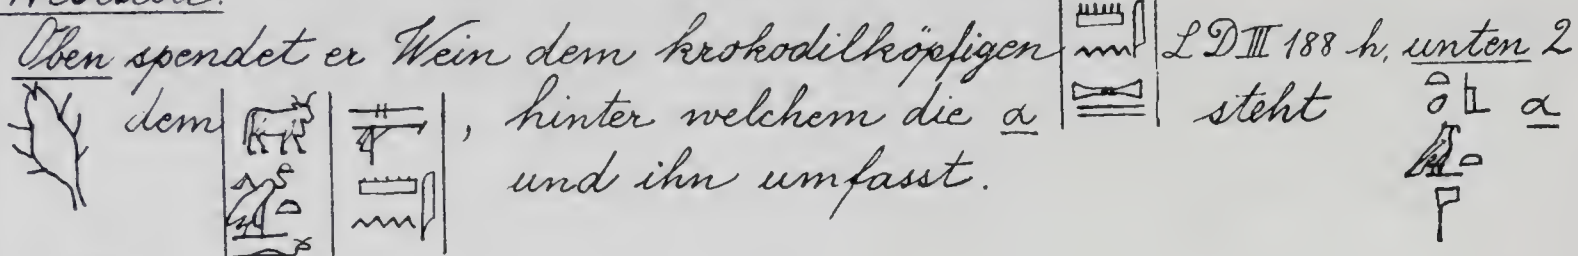 Oben spendet er Wein dem krokodilköpfigen LD III 188 h. unten 2
dem , hinter welchem die a steht a
und ihn umfasst.